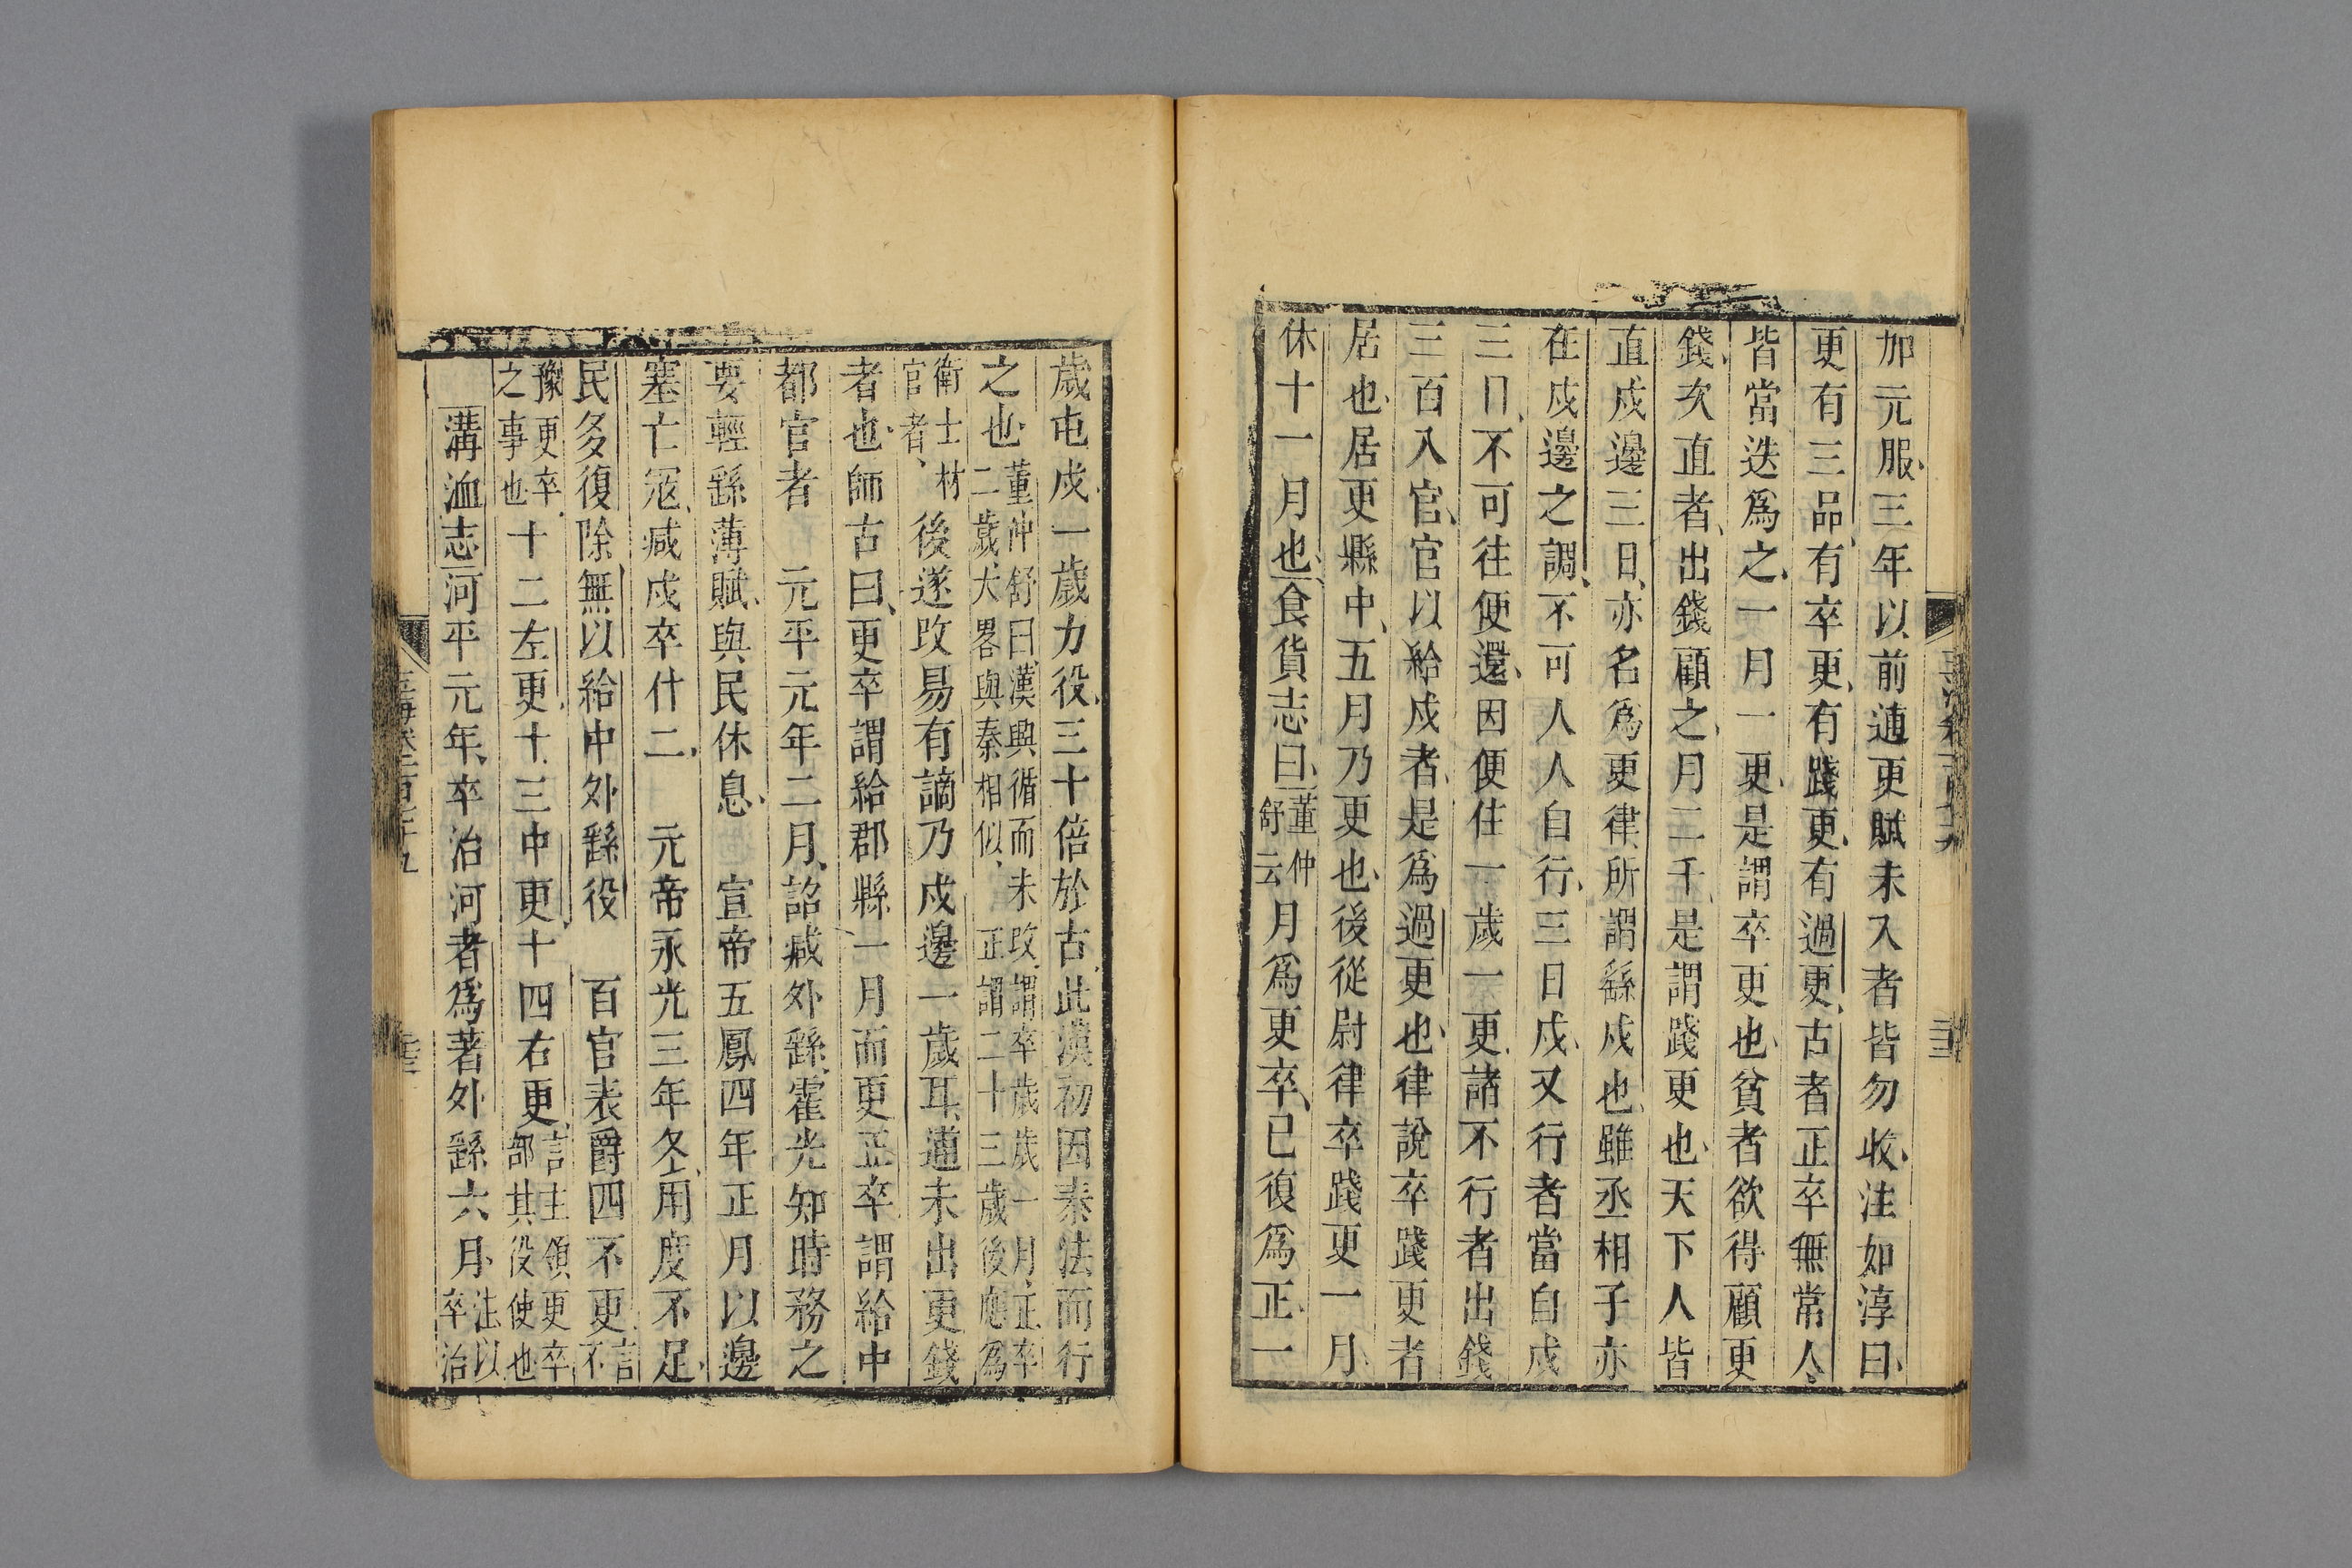 加元服三年以前逋更賦未入者皆勿收注如淳曰
更有三品有卒更有踐更有過更古者正卒無常人
皆當迭爲之一月一更是謂卒更也貧者欲得顧更
錢次直者出錢顧之月二千是謂踐更也天下人皆
直戍邊三日亦名爲更律所謂繇戍也雖丞相子亦
在戍邊之調不可人人自行三日戍又行者當自戍
三日不可往便還因便住一歲一更諸不行者出錢
三百入官官以給戍者是爲過更也律說卒踐更者
居也居更縣中五月乃更也後從尉律卒踐更一月
休十一月也食貨志曰董仲舒云月爲更卒已復爲正一
歲屯戍一歲力役三十倍於古此漢初因秦法而行
之也董仲舒曰漢興循而未攺謂卒歲歲一月正卒二歲大畧與秦相似正謂二十三歲後應爲
衛士材官者後遂攺易有謫乃戍邊一歲耳逋未出更錢
者也師古曰更卒謂給郡縣一月而更正卒謂給中
都官者 元平元年二月詔減外繇霍光知時務之
要輕繇薄賦與民休息 宣帝五鳳四年正月以邊
塞亡寇減戍卒什二 元帝永光三年冬用度不足
民多復除無以給中外繇役 百官表爵四不更言不
豫更卒之事也十二左更十三中更十四右更言主領更卒部其役使也
溝洫志河平元年卒治河者爲著外繇六月注以卒治